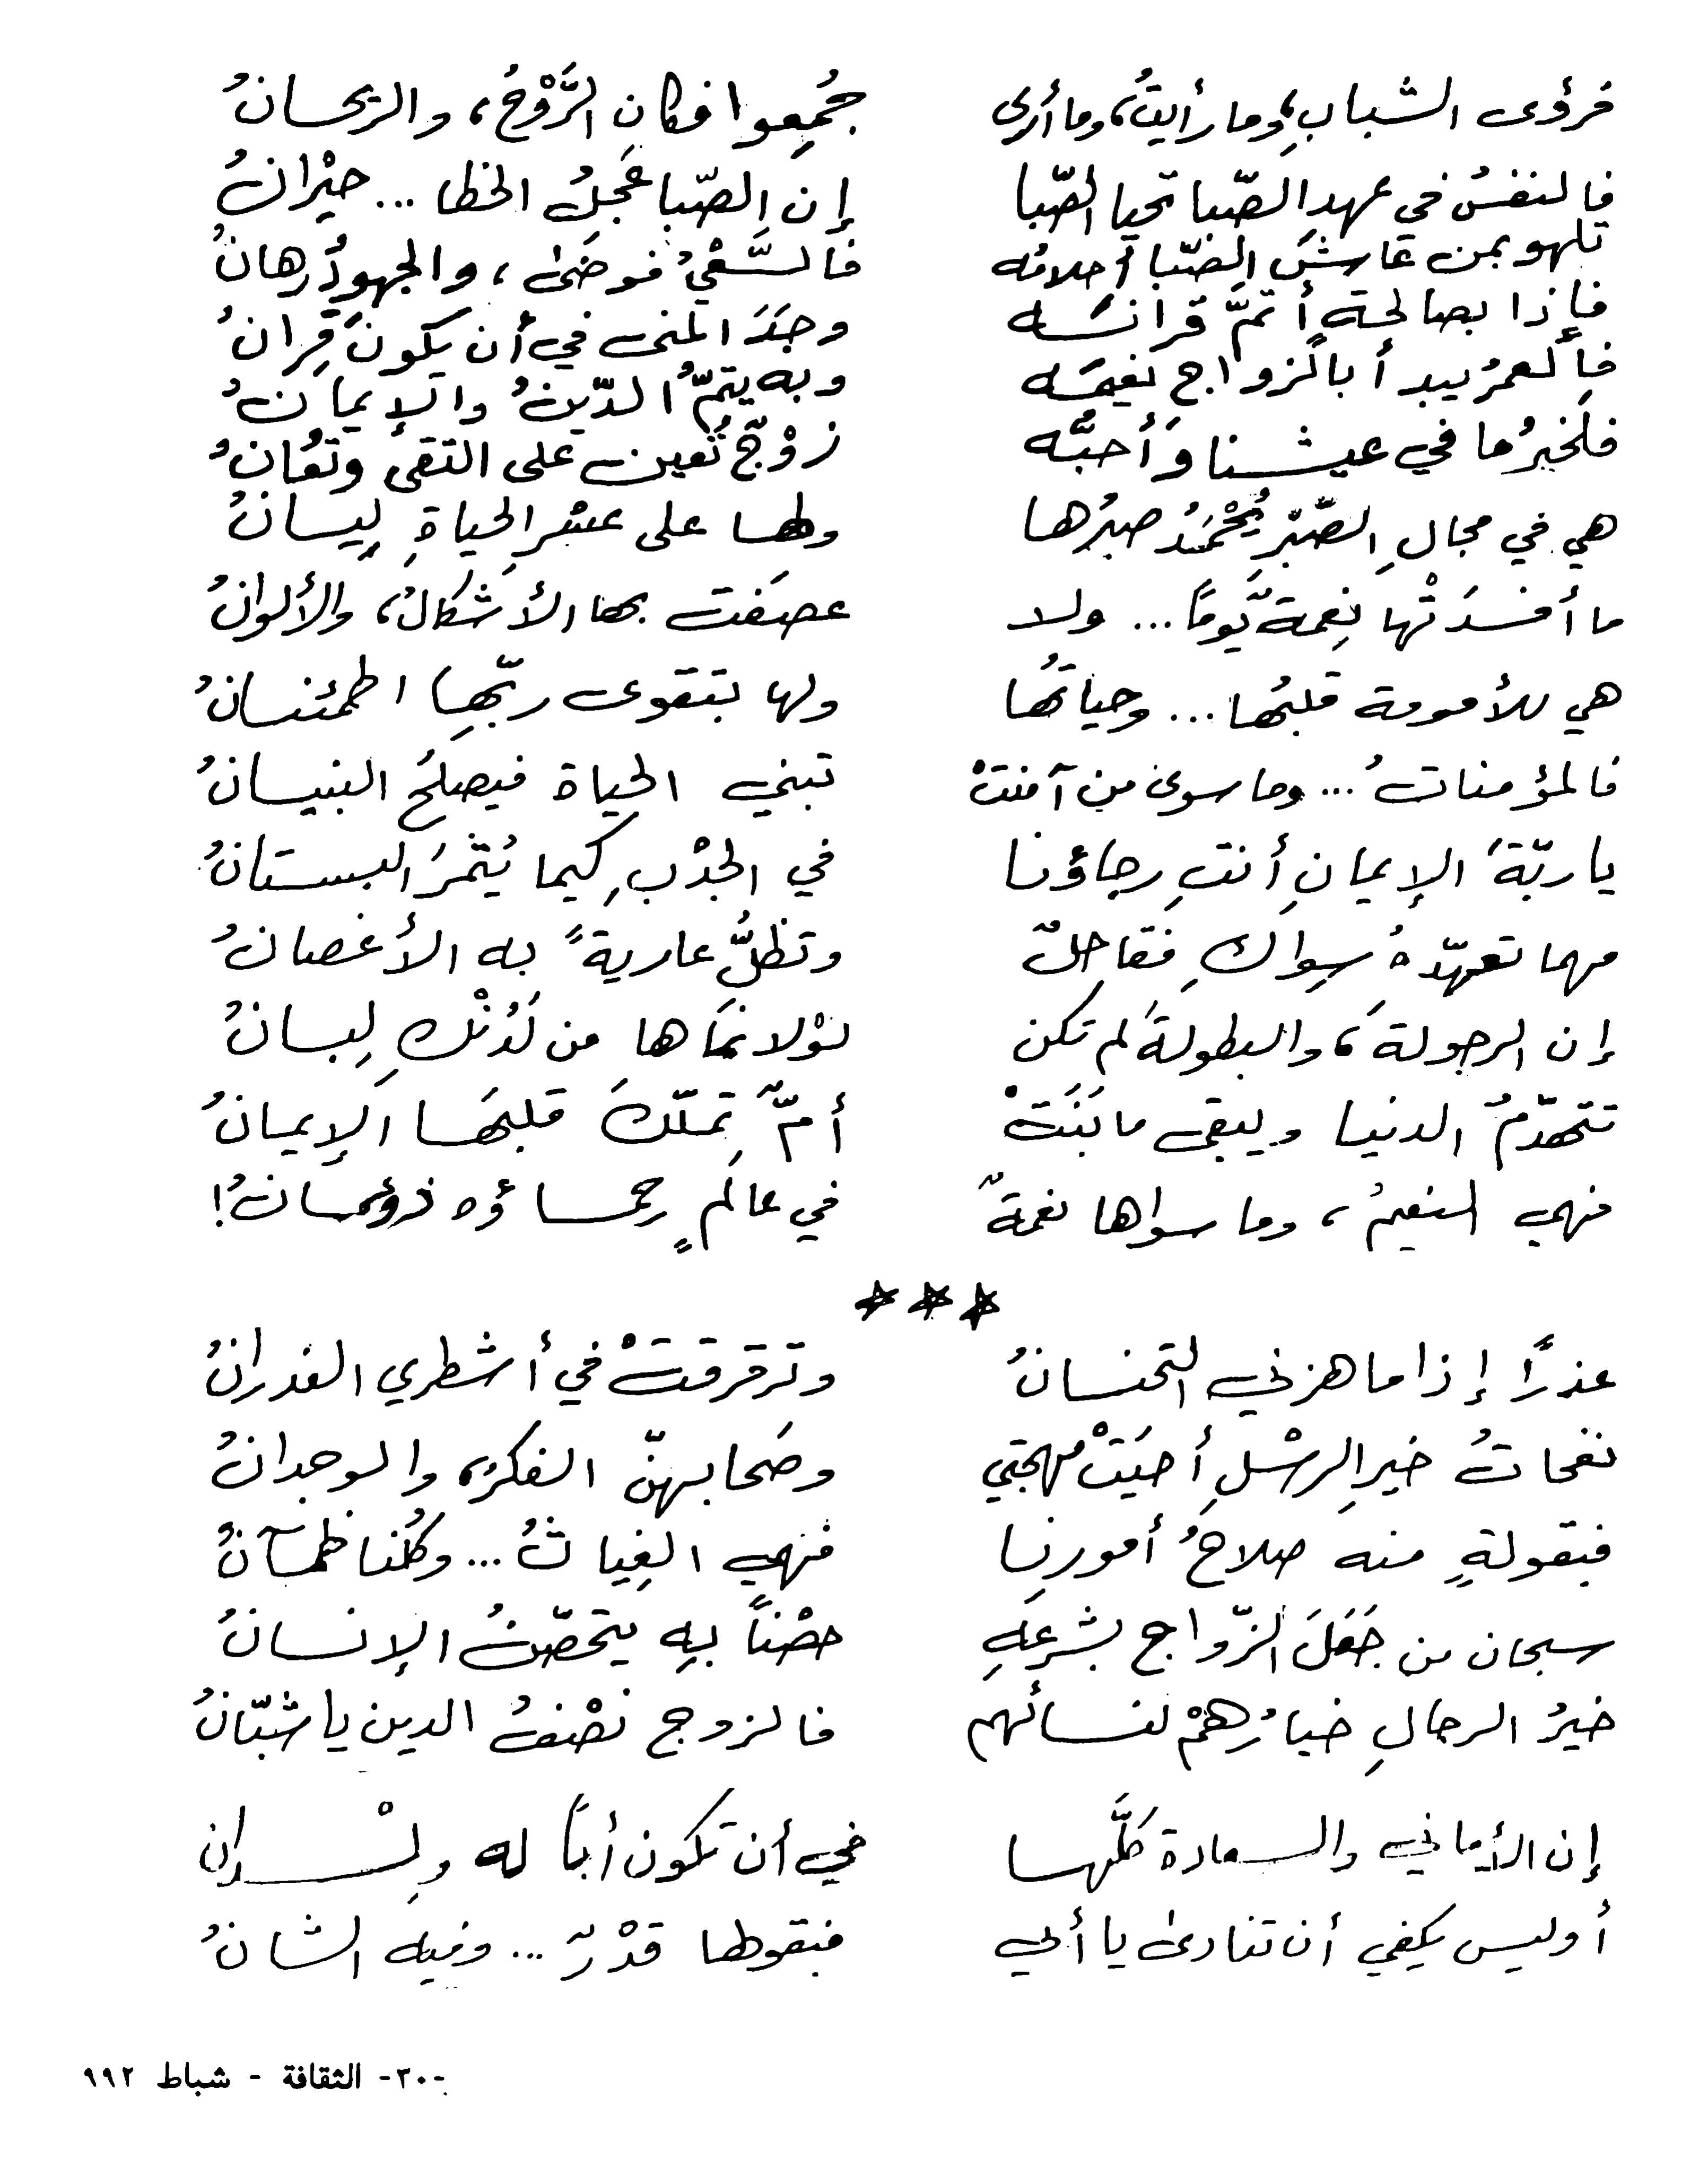 فرؤى الشبابِ، وما رأيتُ، وما أرى جُمِعوا فكان الرَّوْحُ، والريحانُ
فالنفسُ في عهدِ الصّبا تحيا الصّبا إن الصّبا عَجِلُ الخطا ... حيْرانُ
تلهو بمن عاشَ الصّبا أحلامُه فالسَّعْيُ فوضَى، والجهودُ رهانُ
فإذا بصالحةٍ أتمَّ قرانَه وجَدَ المنى في أن يكونَ قِرانُ
فالعمرُ يبدأ بالزواج نعيمَه وبه يتمُّ الدّينُ والإيمانُ
فلَخيرُ ما في عيشنا وَأَحبُّه زوْجٌ تُعين على التقى وتُعانُ
هي في مجالِ الصّبْرِ يُحْمَدُ صبرُها ولها على عسْرِ الحياةِ لِيسانُ
ما أفسدَتْها نِعمةٌ يَوماً ... ولا عصَفت بها الأشكالُ، والألوانُ
هي للأمومة قلبُها ... وحياتُها ولها بتقوى ربّها اطمئنانُ
فالمؤمناتُ ... وما سوى من آمنتْ تبني الحياة فيصلحُ البنيانُ
يا ربّةَ الإيمانِ أنتِ رجاؤنا في الجدْبِ كيما يُثمرَ البستانُ
مهما تعهّدهُ سِواكِ فقاحلٌ وتظلُّ عاريةً به الأغصانُ
إن الرجولةَ، والبطولةَ لم تكن لوْلا نمَاها من لَدُنْكِ لِبانُ
تتهدّمُ الدنيا ويبقى ما بَنَتْ أمٌّ تملّكَ قلبَها الإيمانُ
فهي النعيمُ، وما سواها نعمةٌ في عالَمٍ رحماؤه ذؤبانُ!
***
عذراً إذا ما هزني التحنانُ وترقرقتْ في أشطري الغدرانُ
نفحاتُ خيرِ الرسْلِ أحيَتْ مهجتي وصَحا بهنّ الفكرُ، والوجدانُ
فبقولةٍ منه صلاحُ أمورنا فهي الغِياثُ ... وكلُنا ظمآنُ
سبحان من جَعَلَ الزّواج بشرعِهِ حصْناً بِهِ يتحصّنُ الإنسانُ
خيرُ الرجالِ خيارُهمْ لنسائهم فالزوج نصْفُ الدين يا شبّانُ
إن الأماني والسعادة كلَّها في أن تكون أباً له وِلْدان
أوليس يكفي أن تنادى يا أبي فبقولها قدْرٌ ... وفيه الشانُ
-٣٠- الثقافة - شباط ٩٩٢